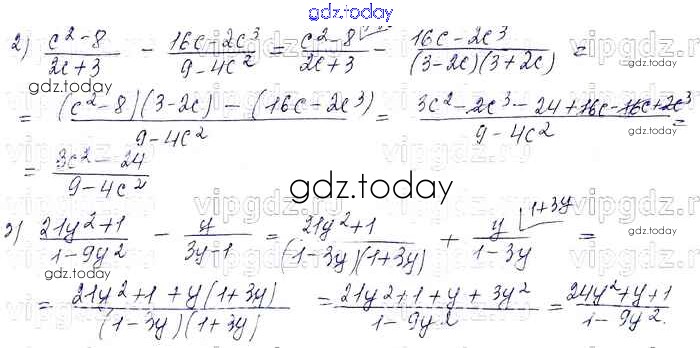 gdz.today
2) \frac{c^2-8}{2c+3} - \frac{16c-2c^3}{9-4c^2} = \frac{c^2-8}{2c+3} - \frac{16c-2c^3}{(3-2c)(3+2c)} =
= \frac{(c^2-8)(3-2c) - (16c-2c^3)}{9-4c^2} = \frac{3c^2-2c^3-24+16c-16c+2c^3}{9-4c^2} =
= \frac{3c^2-24}{9-4c^2}
3) \frac{21y^2+1}{1-9y^2} - \frac{y}{3y-1} = \frac{21y^2+1}{(1-3y)(1+3y)} + \frac{y}{1-3y}^{1+3y} =
= \frac{21y^2+1+y(1+3y)}{(1-3y)(1+3y)} = \frac{21y^2+1+y+3y^2}{1-9y^2} = \frac{24y^2+y+1}{1-9y^2}.
gdz.today
gdz.today
gdz.today
gdz.today
gdz.today
gdz.today